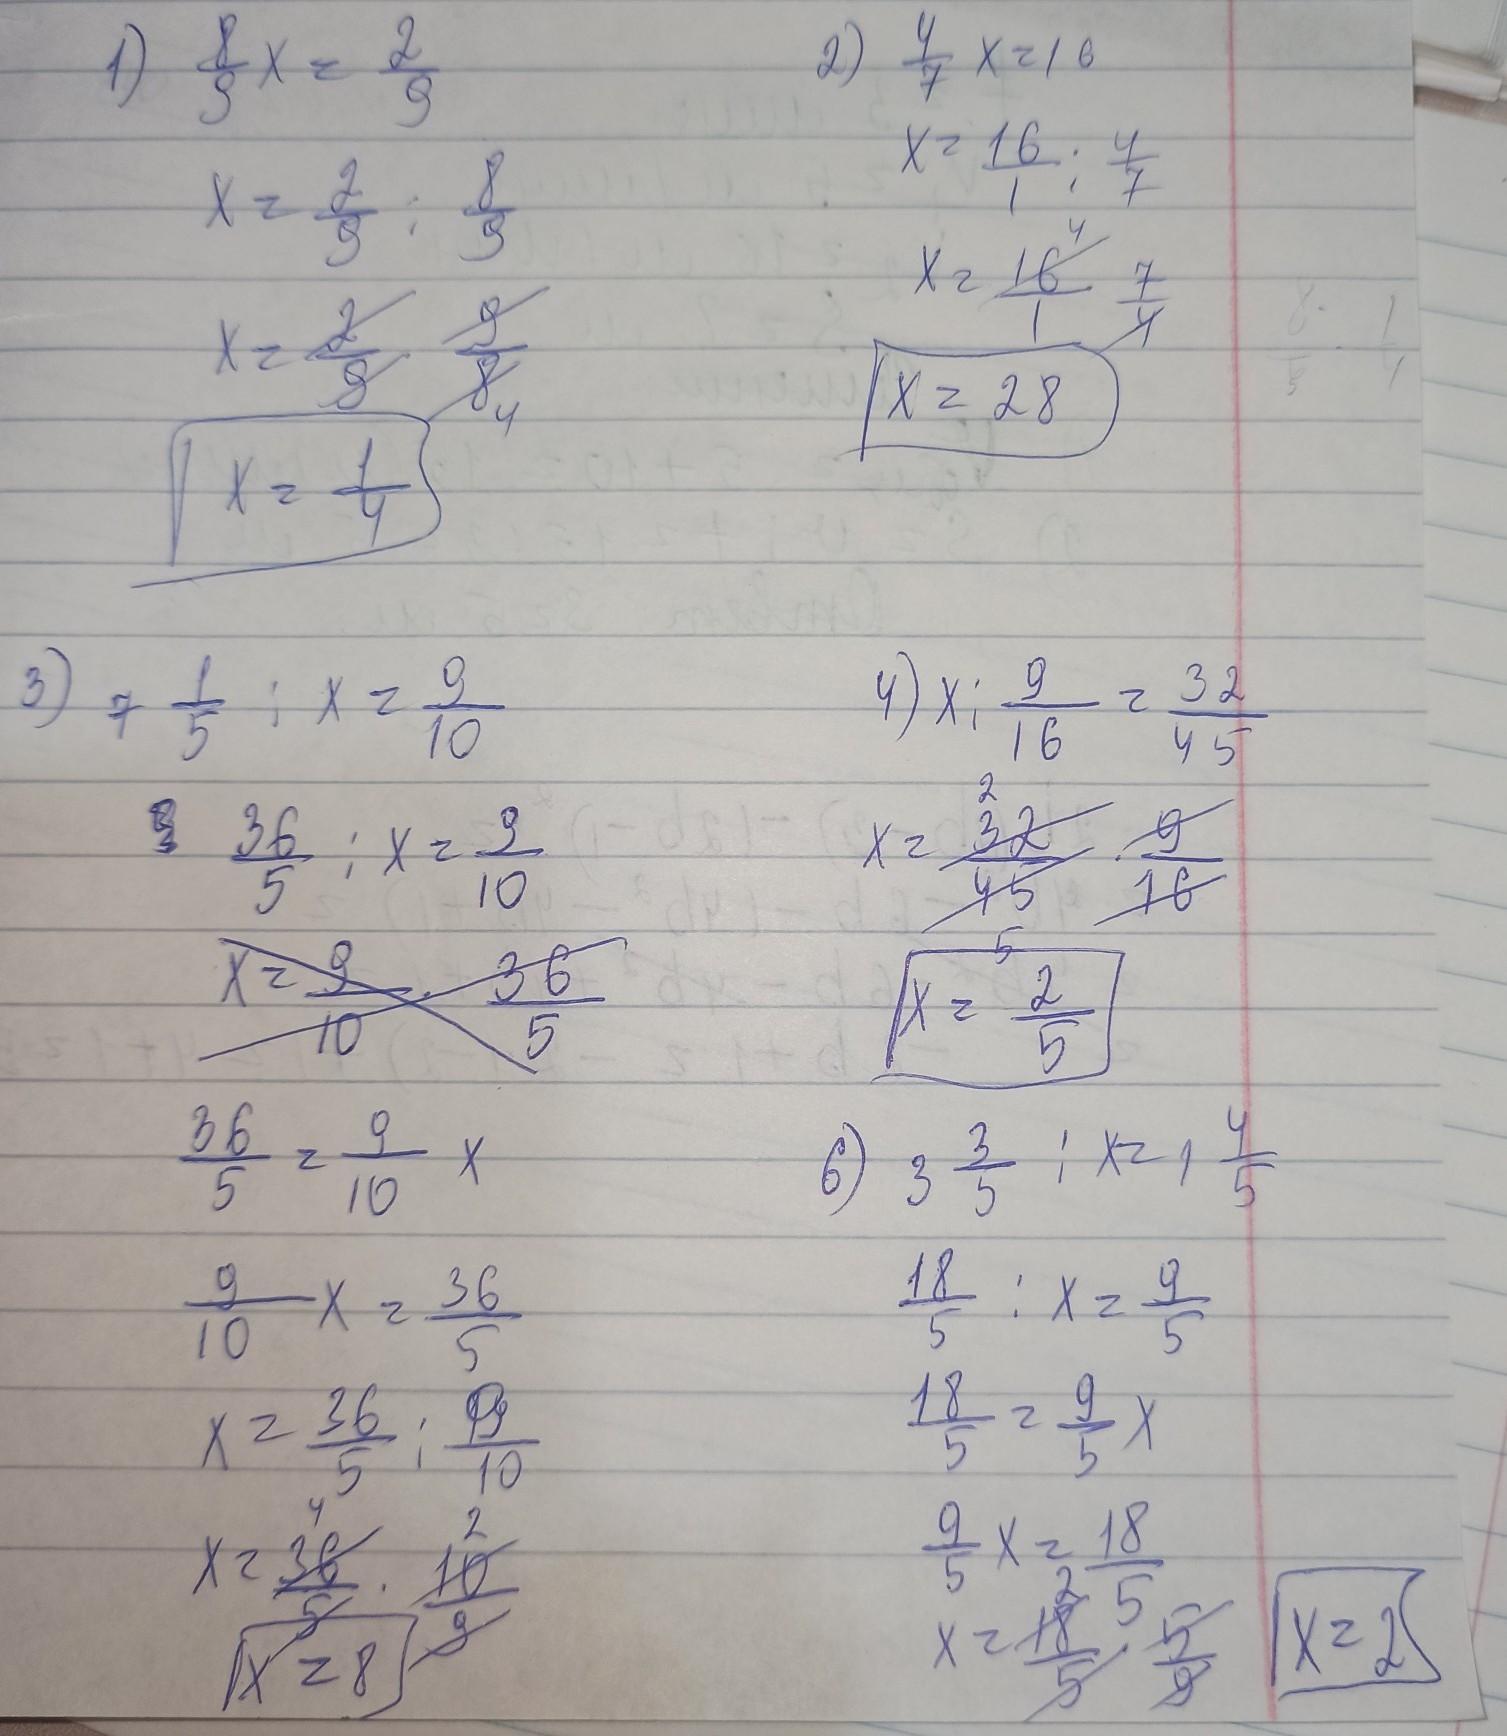 1) 8/9 x = 2/9
x = 2/9 : 8/9
x = 2/9 · 9/8 4
x = 1/4
2) 4/7 x = 16
x = 16/1 : 4/7
x = 16/1 4 7/4
x = 28
3) 7 1/5 : x = 9/10
36/5 : x = 9/10
x = 9/10 · 36/5
36/5 = 9/10 x
9/10 x = 36/5
x = 36/5 : 9/10
x = 36/5 4 · 10/9 2
x = 8
4) x : 9/16 = 32/45
x = 32/45 2 5 · 9/16
x = 2/5
6) 3 3/5 : x = 1 4/5
18/5 : x = 9/5
18/5 = 9/5 x
9/5 x = 18/5
x = 18/5 2 · 5/9
x = 2